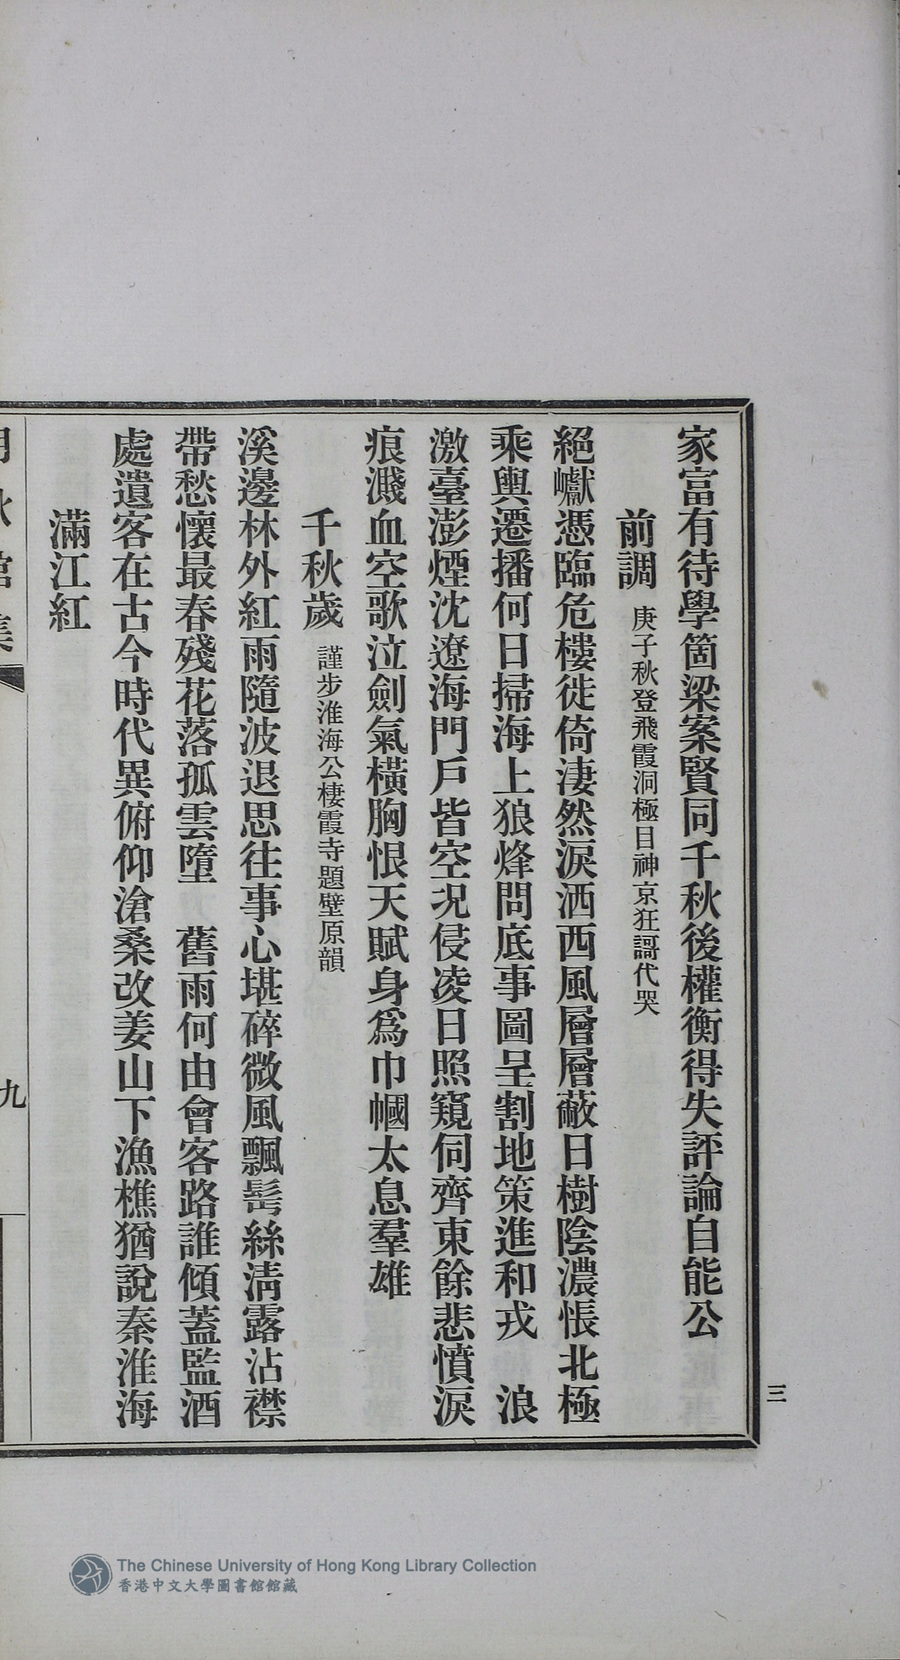 家富有待學箇梁案賢同千秋後權衡得失評論自能公
前調 庚子秋登飛霞洞極目神京狂謌代哭
絕巘憑臨危樓徙倚淒然淚洒西風層層蔽日樹陰濃悵北極
乘輿遷播何日掃海上狼烽問底事圖呈割地策進和戎 浪
激臺澎煙沈遼海門戶皆空況侵凌日照窺伺齊東餘悲憤淚
痕濺血空歌泣劍氣橫胸恨天賦身爲巾幗太息羣雄
千秋歲 謹步淮海公棲霞寺題壁原韻
溪邊林外紅雨隨波退思往事心堪碎微風飄髩絲淸露沾襟
帶愁懷最春殘花落孤雲墮 舊雨何由會客路誰傾蓋監酒
處遺客在古今時代異俯仰滄桑改姜山下漁樵猶說秦淮海
滿江紅
九
三
The Chinese University of Hong Kong Library Collection
香港中文大學圖書館館藏